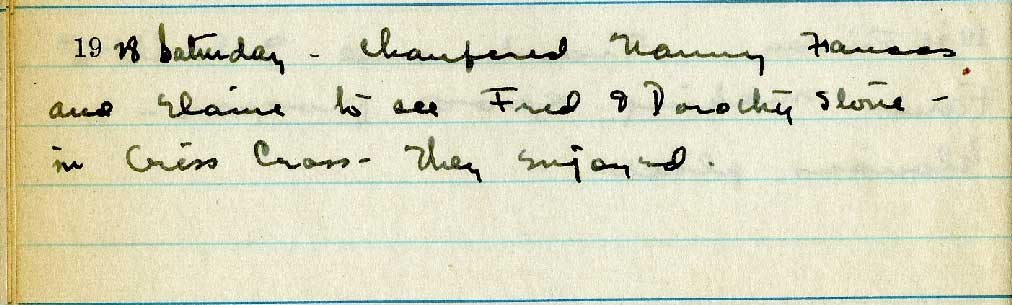 1928 Saturday - Chauffered Nanny Frances
and Elaine to see Fred & Dorothy Stone -
in Criss Cross - They enjoyed.